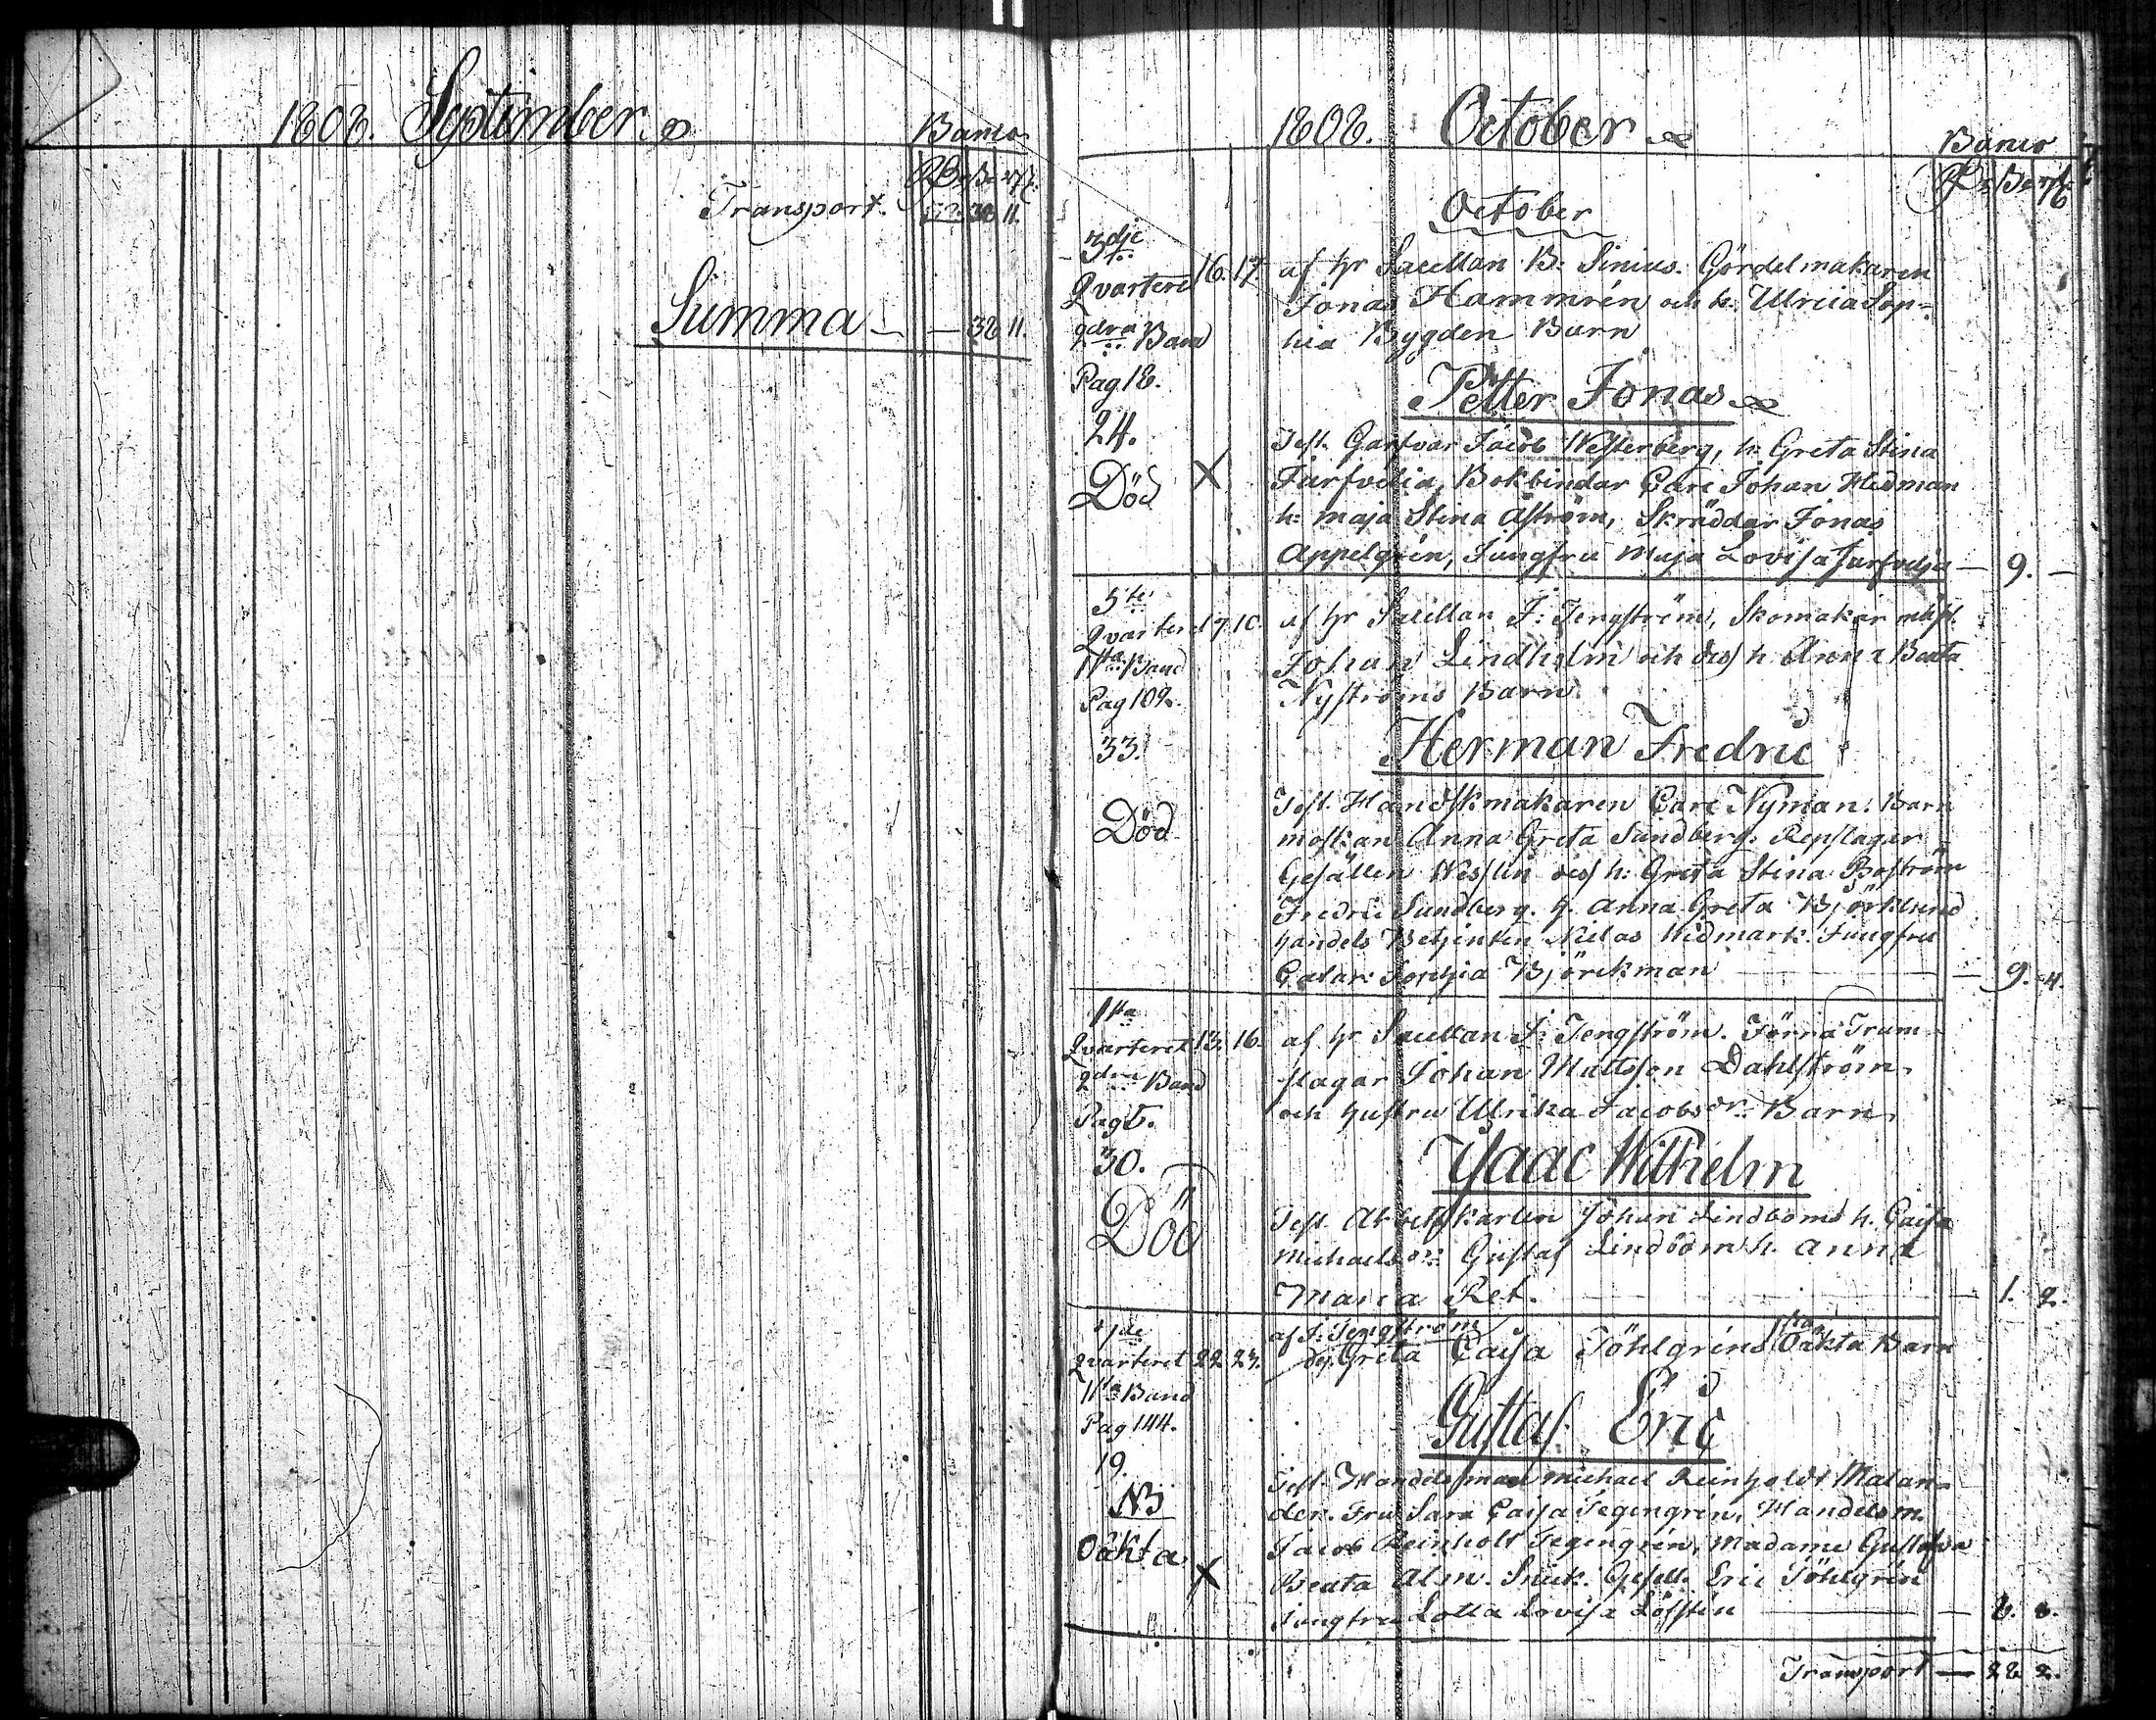 1808. September.
Banco
Transport. 38 11.
Summa — 38 11.
1808. October
Banco
October
3dje
Qvarteret 16. 17. af hr Sacellan B: Sinius. Gördelmakaren
Jonas Hammrén och h: Ulrica Sop-
2dra Band hia Bygden Barn
Pag. 18.
Petter Jonas
24.
Test. Garfvar Jacob Westerberg, h: Greta Stina
Död X Furfvelia, Bokbindar Carl Johan Hedman
h: Maja Stina Åström, Skräddar Jonas
Appelgrén, Jungfru Maja Lovisa — 9. —
5te
Qvarteret 7 10. af hr Sacellan J: Tengström, Skomakar
1sta Band Johan Lindholm och dess h: Anna Beata
Pag 109. Nyströms Barn
33. Herman Fredric
Test. Handskmakaren Carl Nyman. Barn
Död morskan Anna Greta Sundberg. Repslagar
Gesällen Wesslin dess h: Greta Stina Boström
Fredric Sundberg. h. Anna Greta Björklund
handels Betjenten Niclas Widmark. Jungfru
Cathar: Sophia Björckman — 9. 4.
1sta
Qvarteret 13. 16. af hr Sacellan J: Tengström. Förra Trum-
2dra Band slagar Johan Mattsson Dahlström,
Pag 5. och hustru Ulrika Jacobsdr: Barn,
30. Isaac Wilhelm
Test. Arbetskarlen Johan Lindboms h. Caisa
Död Michaelsdr: Gustaf Lindbom h. Anna
Maria Ret. — 1. 2.
af J: Tengström
Qvarteret 22 23. Greta Caisa Töhlgréns 1sta Oäkta Barn
1sta Band
Pag 144. Gustaf Eric
19.
Test. Handelsman Michael Reinholdt Malan-
NB der. Fru Sara Caisa Tegengrén, Handelsm.
Oäkta Jacob Reinholt Tegengrén, Madame Gustafva
X Beata Alm. Snick. Gesell. Eric Töhlgrén
Jungfru Lotta Lovisa Löfstén —
Transport —